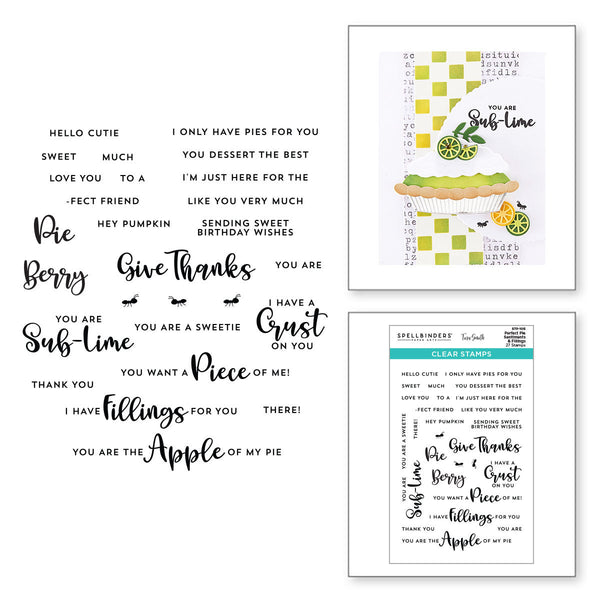 HELLO CUTIE I ONLY HAVE PIES FOR YOU
SWEET MUCH YOU DESSERT THE BEST
LOVE YOU TO A I'M JUST HERE FOR THE
-FECT FRIEND LIKE YOU VERY MUCH
Pie HEY PUMPKIN SENDING SWEET
BIRTHDAY WISHES
Berry Give Thanks YOU ARE
YOU ARE
Sub-lime YOU ARE A SWEETIE I HAVE A
Crust
ON YOU
YOU WANT A Piece OF ME!
THANK YOU
I HAVE Fillings FOR YOU THERE!
YOU ARE THE Apple OF MY PIE
YOU ARE
Sub-lime
SPELLBINDERS
PAPER ARTS
Perfect Pie
Sentiments
& Fillings
27 Stamps
CLEAR STAMPS
HELLO CUTIE I ONLY HAVE PIES FOR YOU
SWEET MUCH YOU DESSERT THE BEST
LOVE YOU TO A I'M JUST HERE FOR THE
-FECT FRIEND LIKE YOU VERY MUCH
HEY PUMPKIN SENDING SWEET
BIRTHDAY WISHES
THERE!
YOU ARE A SWEETIE
Pie Give Thanks
Berry I HAVE A
Crust
ON YOU
YOU ARE
Sub-lime
YOU WANT A Piece OF ME!
I HAVE Fillings FOR YOU
THANK YOU YOU ARE
YOU ARE THE Apple OF MY PIE